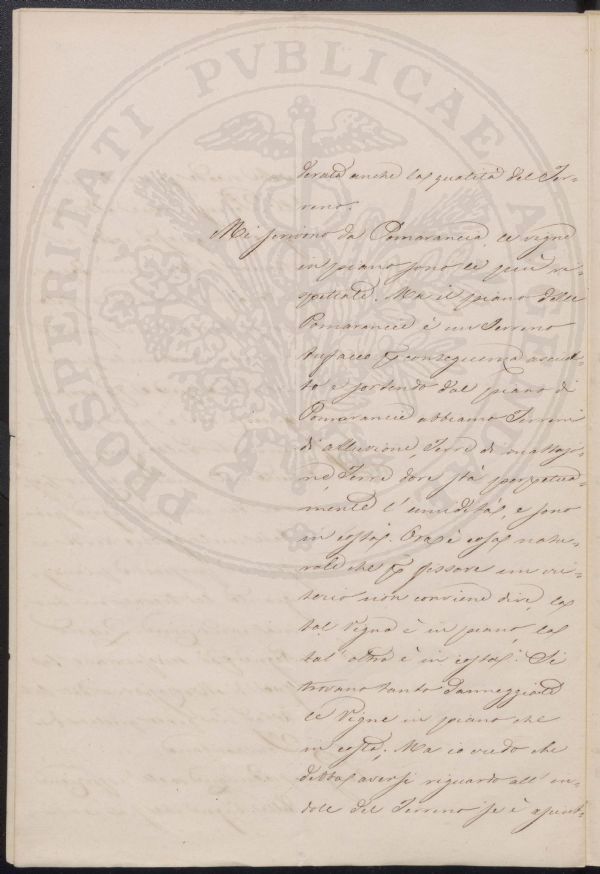 PROSPERITATI PVBLICAE AVGENDAE
derata anche la qualità del Ter=
reno.
Mi scrivono da Pomarance, le vigne
in piano sono le più ri=
spettate. Ma il piano delle
Pomarancie è un Terreno
tufaceo p conseguenza asciut=
to e sortendo dal piano di
Pomarancie abbiamo Terreni
di alluvione, Terre di mattajo=
ne, Terre dove stà perpetua=
mente l'umidità, e sono
in costa. Ora è cosa natu=
rale che p fissare un cri=
terio non conviene dire, la
tal Vigna è in piano, la
tal'altra è in costa. Si
trovano tanto danneggiate
le Vigne in piano che
in costa; Ma io credo che
debba aversi riguardo all'in=
dole del Terreno se è asciut=